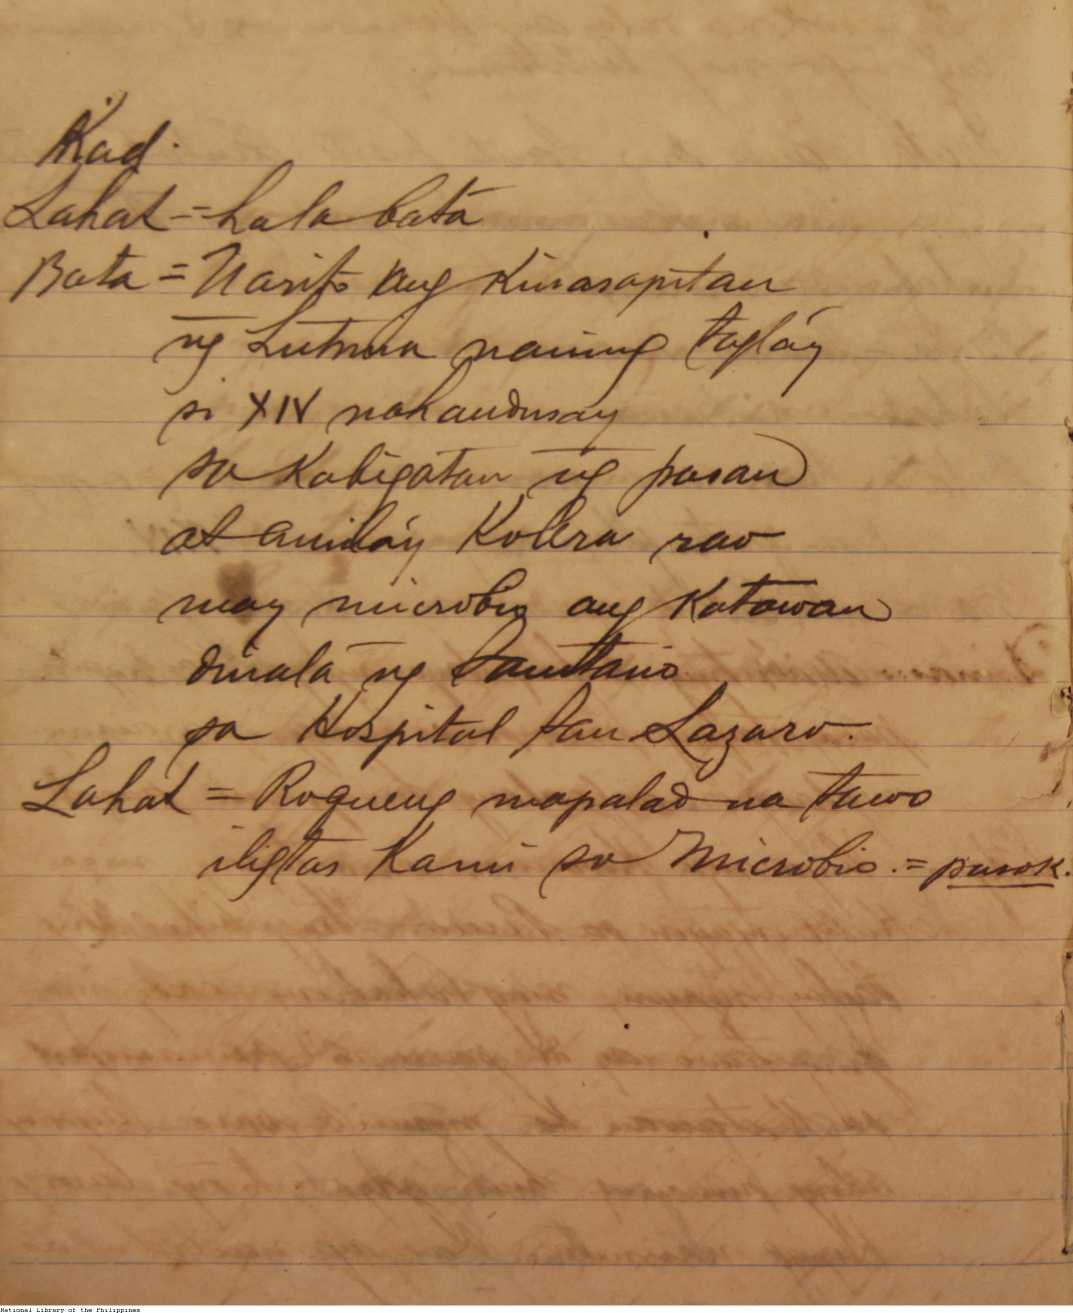 Kad.
Lahat = hala bata
Bata = Narito ang Kinasapitan
ng Lutrina naming tagláy
si XIV nahandusay
sa Kabigatan ng pasan
at anilá'y Kolera raw
may microbio ang Katawan
dinalá ng Sanitario
sa Hospital San Lazaro.
Lahat = Roqueng mapalad na tawo
iligtas Kami sa Microbio. = pasok.
National Library of the Philippines